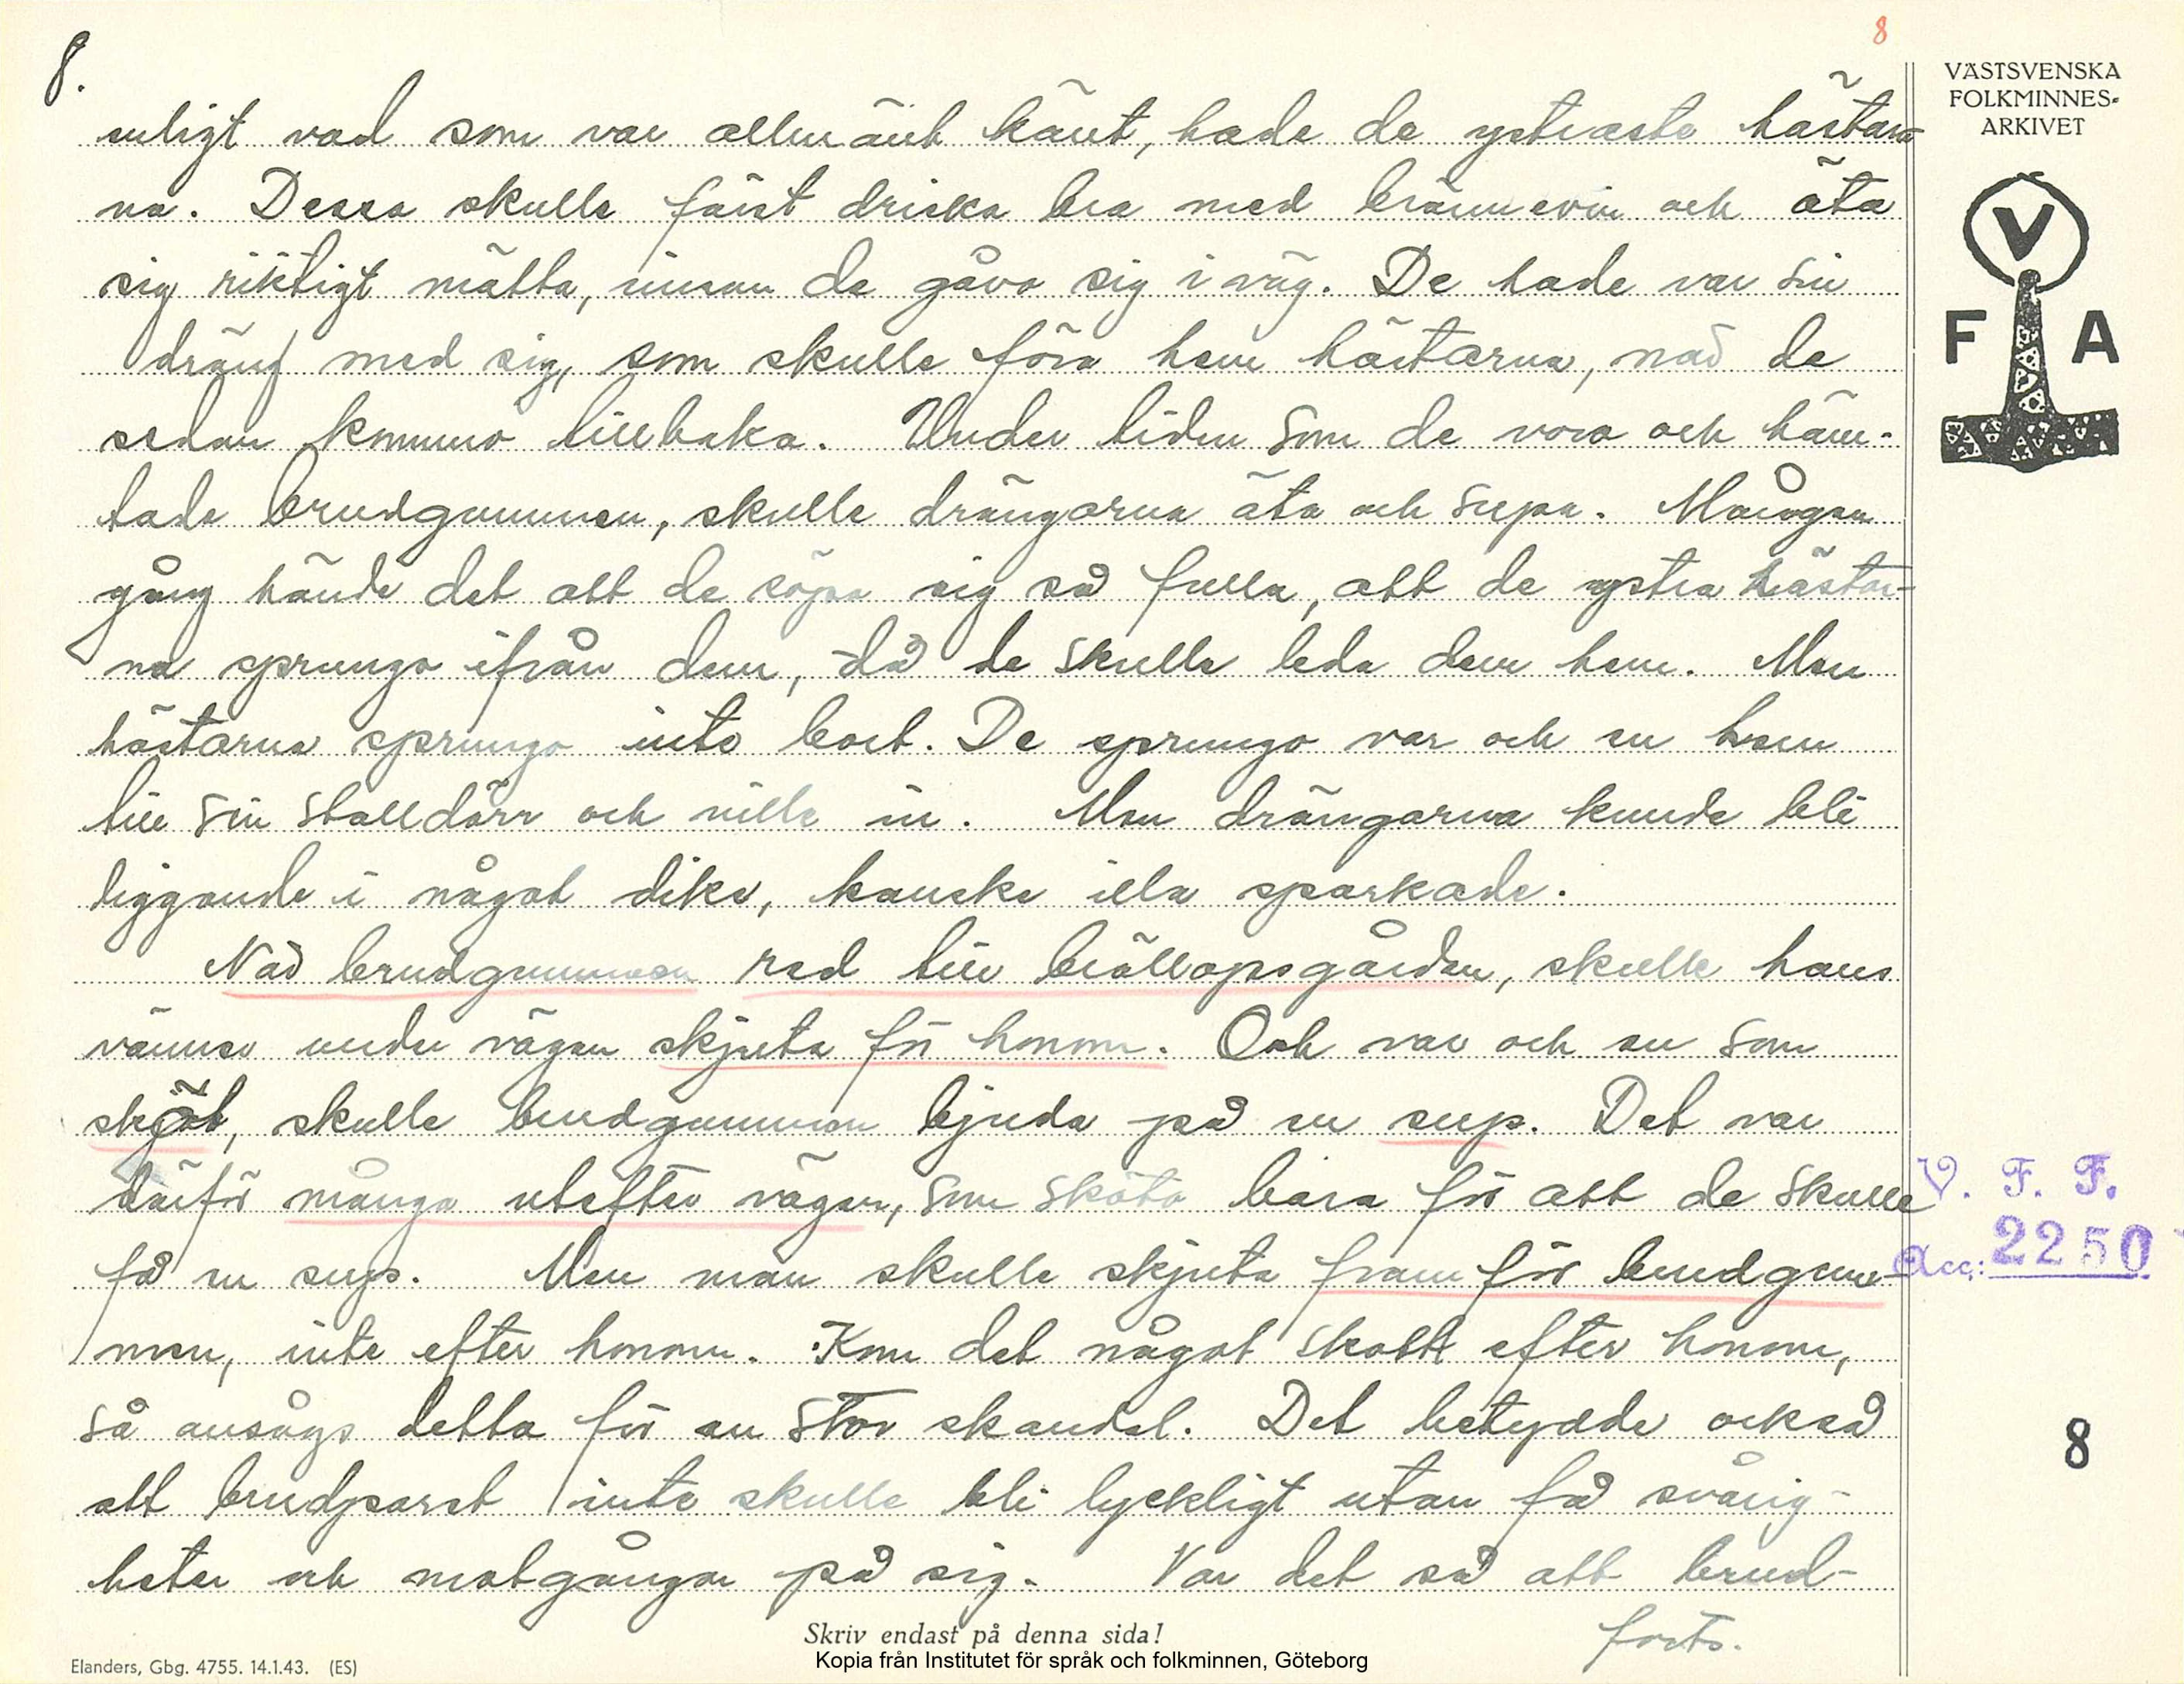 8.
8
VÄSTSVENSKA
FOLKMINNES-
ARKIVET
V
F A
enligt vad som var allmänt känt, hade de ystraste hästar-
na. Dessa skulle först dricka bra med brännevin och äta
sig riktigt mätta, innan de gåvo sig i väg. De hade var sin
dräng med sig, som skulle föra hem hästarna, när de
sedan kommo tillbaka. Under tiden som de voro och häm-
tade brudgummen, skulle drängarna äta och supa. Mången
gång hände det att de söpo sig så fulla, att de ystra hästar-
na sprungo ifrån dem, då de skulle leda dem hem. Men
hästarna sprungo inte bort. De sprungo var och en hem
till sin stalldörr och ville in. Men drängarna kunde bli
liggande i något dike, kanske illa sparkade.
När brudgummen red till bröllopsgården, skulle hans
vänner under vägen skjuta för honom. Och var och en som
sköt, skulle brudgummen bjuda på en sup. Det var
därför många utefter vägen, som sköto bara för att de skulle
få en sup. Men man skulle skjuta fram för brudgum-
men, inte efter honom. Kom det något skott efter honom,
så ansågs detta för en stor skandal. Det betydde också
att brudparet inte skulle bli lyckligt utan få svårig-
heter och motgångar på sig. Var det så att brud-
forts.
V. F. F.
Acc: 2250
8
Skriv endast på denna sida!
Elanders, Gbg. 4755. 14.1.43. (ES)
Kopia från Institutet för språk och folkminnen, Göteborg